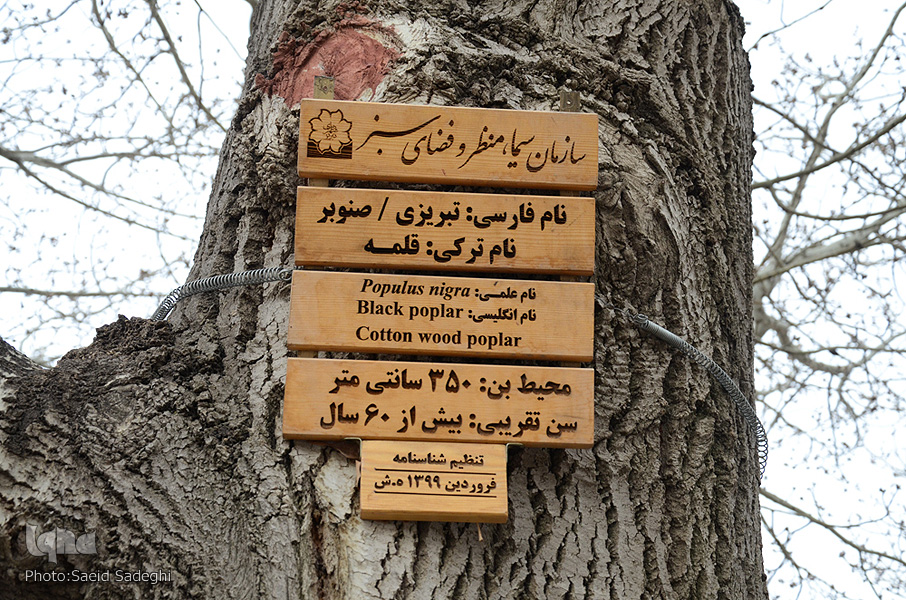 سازمان سیما، منظر و فضای سبز
نام فارسی: تبریزی / صنوبر
نام ترکی: قلمــه
نام علمــی: Populus nigra
نام انگلیسی: Black poplar
Cotton wood poplar
محیط بن: ۳۵۰ سانتی متر
سن تقریبی: بیش از ۶۰ سال
تنظیم شناسنامه
فروردین ۱۳۹۹ ه.ش
iqna
Photo:Saeid Sadeghi